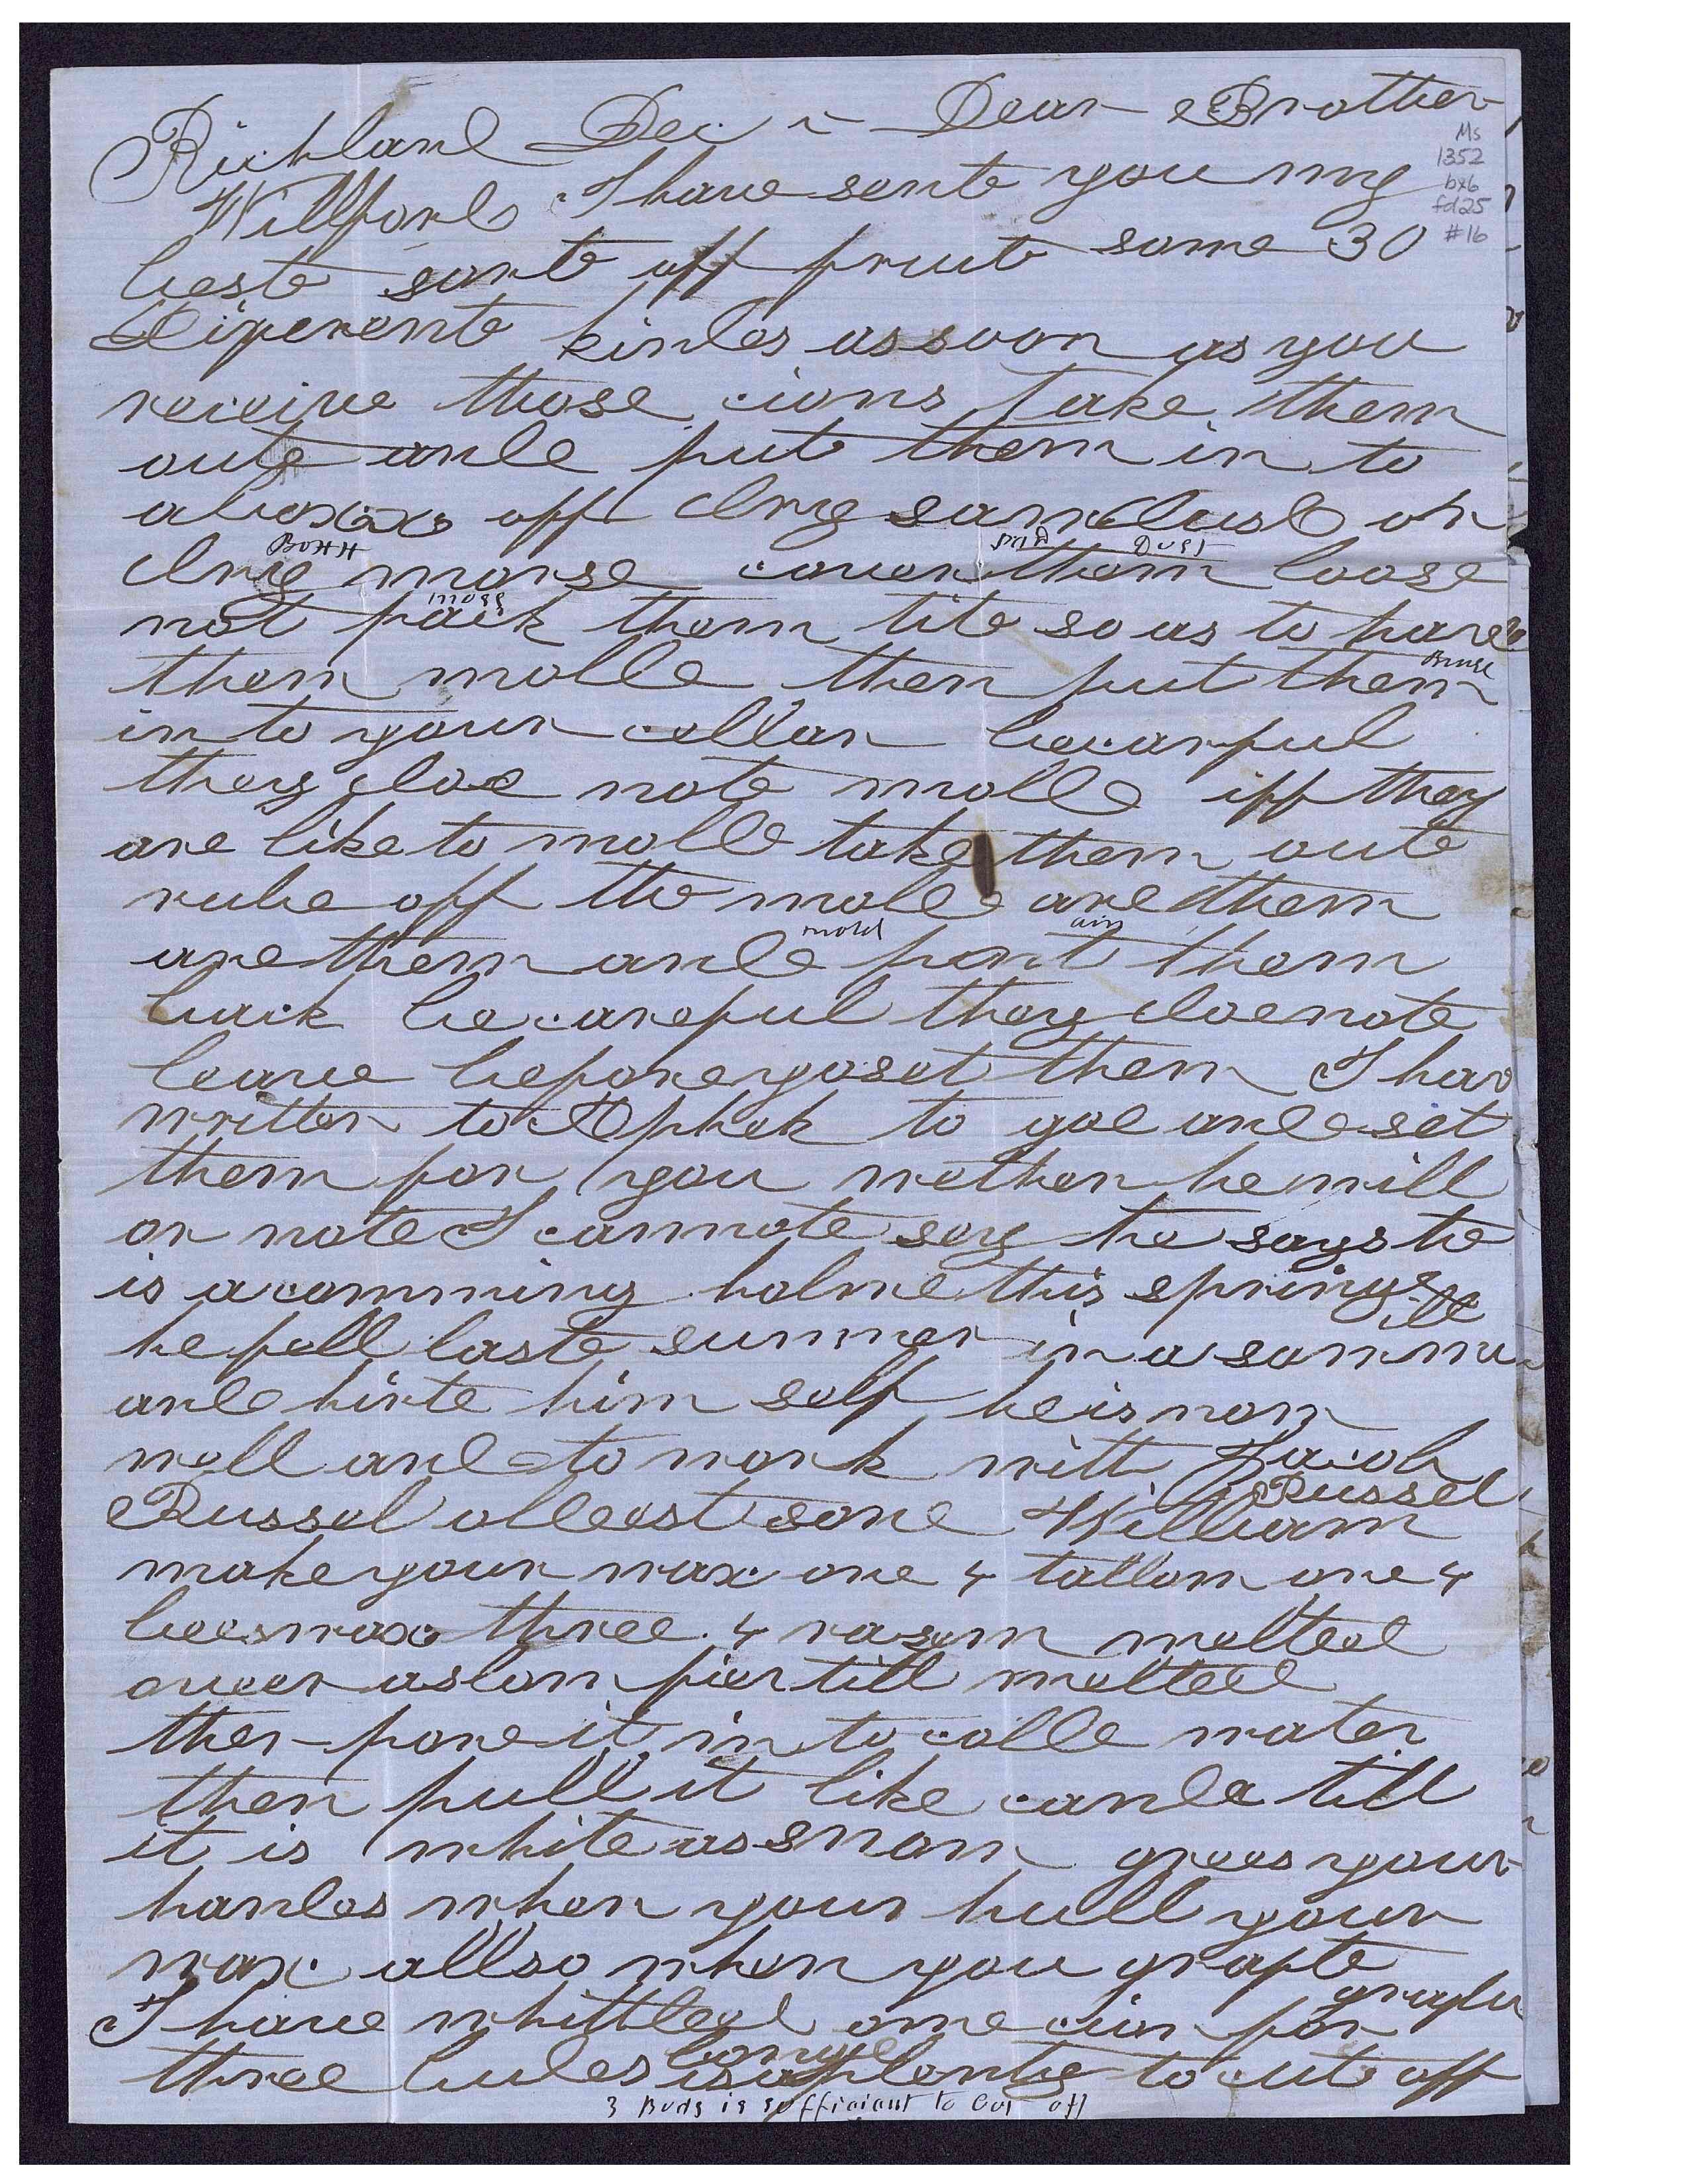 Richland Dec Dear Brother
Ms
1352
bx6
fd25
#16
Willford I have sente you my
beste sorte off fruite some 30
Diferente kindes as soon as you
receive those cions take them
oute ande put them in to
a off dry sandust or
Boxx
sand Dust
dry morse cover them loose
moss
not pack them tite so as to have
them molde then put them
in to your cellar becarful
they doe note molde iff they
are like to molde take them oute
rube off the molde are them
mold
air
are them ande put them
back be careful they doe note
leave before yo set them I have
written to to goe and set
them for you wether he will
or note I cannote say he says he
is a comming holme this spring
he fell laste summer in a
and hirte him self he is now
well and to work with Jacob
Russel
Russel oldest sone William
make your wax one 4 tallow one 4
beeswax three 4 rasum melted
over a slow fier till melted
then pore it in to colde water
then pull it like cande till
it is white as snow grees your
handes when your pull your
wax allso when you grafte
I have whittled one cion for
three budes longe is aplenty to cute off
3 Buds is sufficiant to Cut off